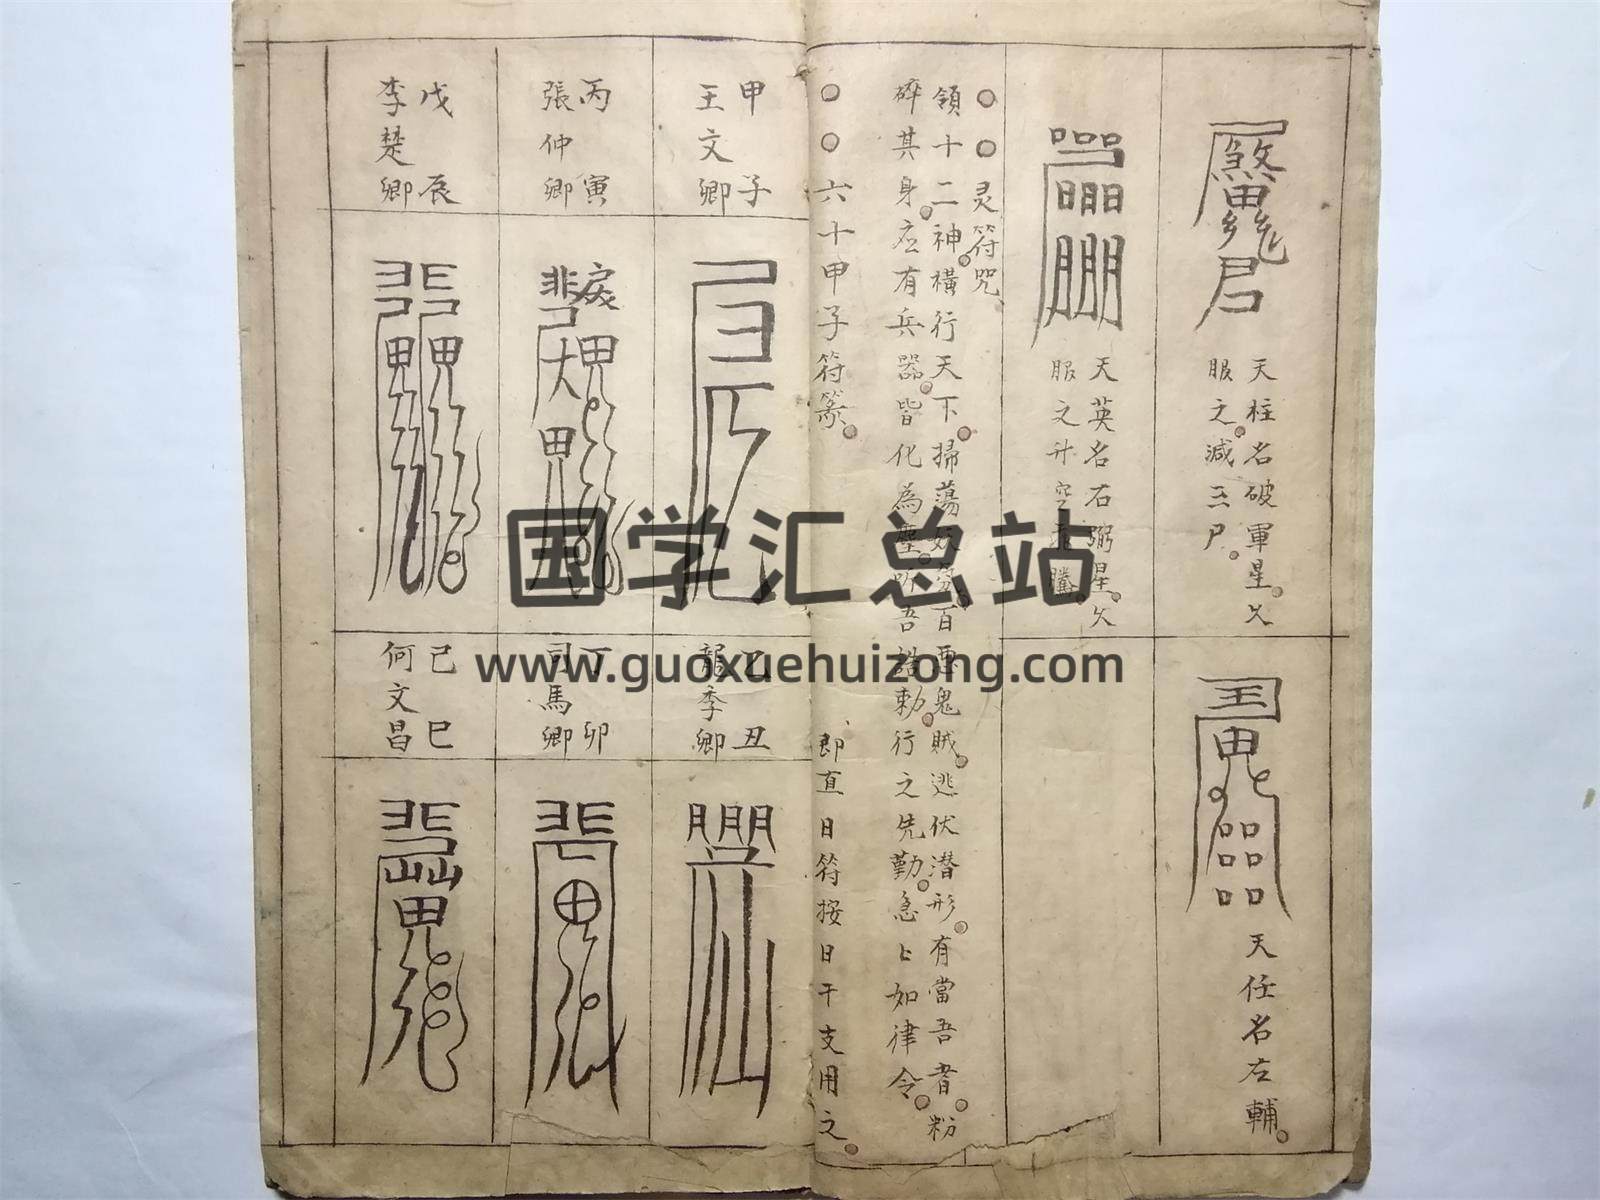 天柱名破軍星久
服之減三尸
天任名左輔
天英名右弼星久
服之升空飛騰
灵符咒
領十二神橫行天下掃蕩妖氛百惡鬼賊逃伏潛形有當吾者粉
碎其身应有兵器皆化為塵吾誥勅行之先勤急〻如律令
六十甲子符篆
即直日符按日干支用之
甲子
王文卿
乙丑
龍季卿
丙寅
張仲卿
丁卯
司馬卿
戊辰
李楚卿
己巳
何文昌
国学汇总站
www.guoxuehuizong.com